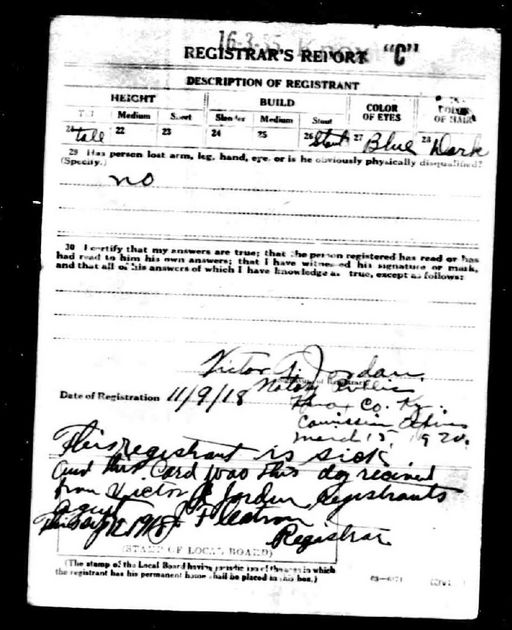 16-3-35
REGISTRAR'S REPORT "C"
DESCRIPTION OF REGISTRANT
HEIGHT BUILD COLOR OF EYES COLOR OF HAIR
Medium Short Slender Medium Stout
21 tall 22 23 24 25 26 Stout 27 Blue 28 Dark
29 Has person lost arm, leg, hand, eye, or is he obviously physically disqualified?
(Specify.)
no
30 I certify that my answers are true; that the person registered has read or has
had read to him his own answers; that I have witnessed his signature or mark,
and that all of his answers of which I have knowledge are true, except as follows:
Victor A. Jordan
Date of Registration 11/9/18 Notary Public
Knox Co. Ky.
Commission Expires
March 15, 1920.
This registrant is sick
and this card was this day received
from Victor A Jordan Registrants
agent
Registrar
(STAMP OF LOCAL BOARD)
(The stamp of the Local Board having jurisdiction of the area in which
the registrant has his permanent home shall be placed in this box.)